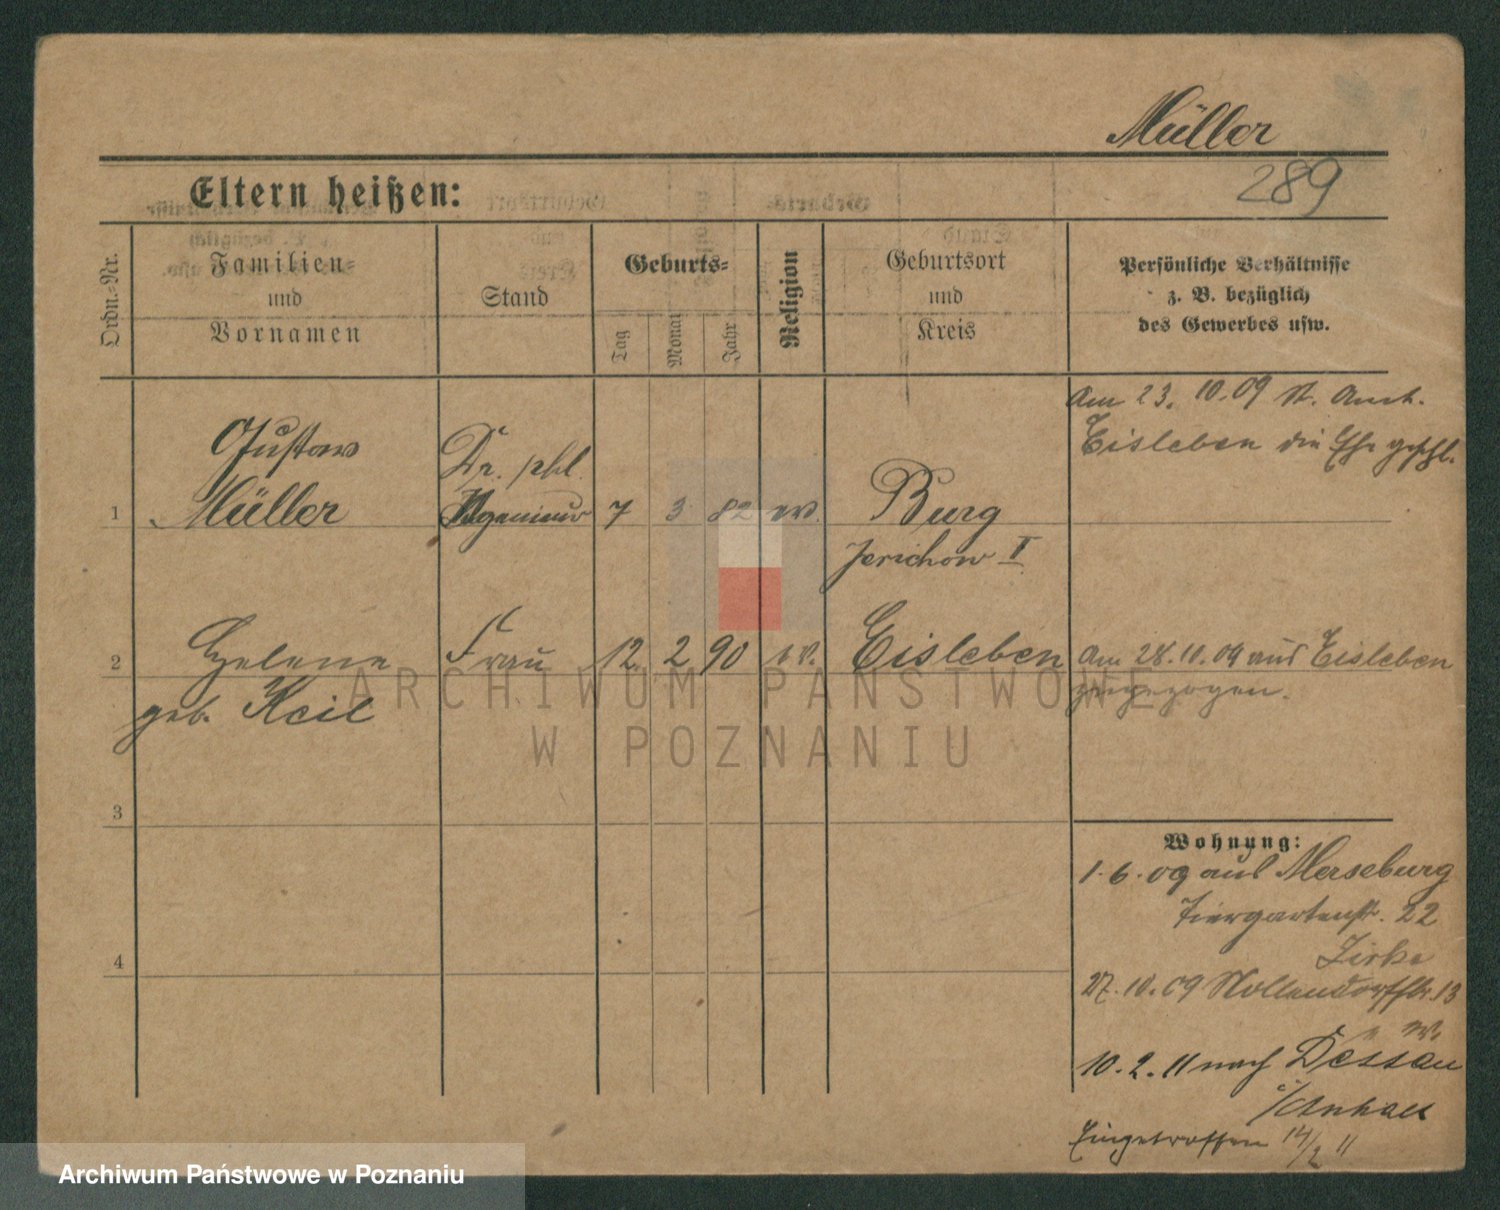 Müller
Eltern heißen:
289
Ordn.-Nr.
Familien-
und
Vornamen
Stand
Geburts-
Tag
Monat
Jahr
Religion
Geburtsort
und
Kreis
Persönliche Verhältnisse
z. B. bezüglich
des Gewerbes usw.
Am 23. 10. 09 St. Amt.
Eisleben die Ehe geschl.
1 Gustav Müller
Dr. phil.
Ingenieur
7 3 82 ev.
Burg
Jerichow I
2 Helene
geb. Keil
Frau 12 2 90 ev. Eisleben
Am 28.10.09 aus Eisleben
zugezogen.
3
4
Wohnung:
1.6.09 aus Merseburg
Tiergartenstr. 22
27.10.09 Nollendorfstr. 13
10.2.11 nach Dessau
i/Anhalt
Eingetroffen 14/2 11
ARCHIWUM PAŃSTWOWE
W POZNANIU
Archiwum Państwowe w Poznaniu